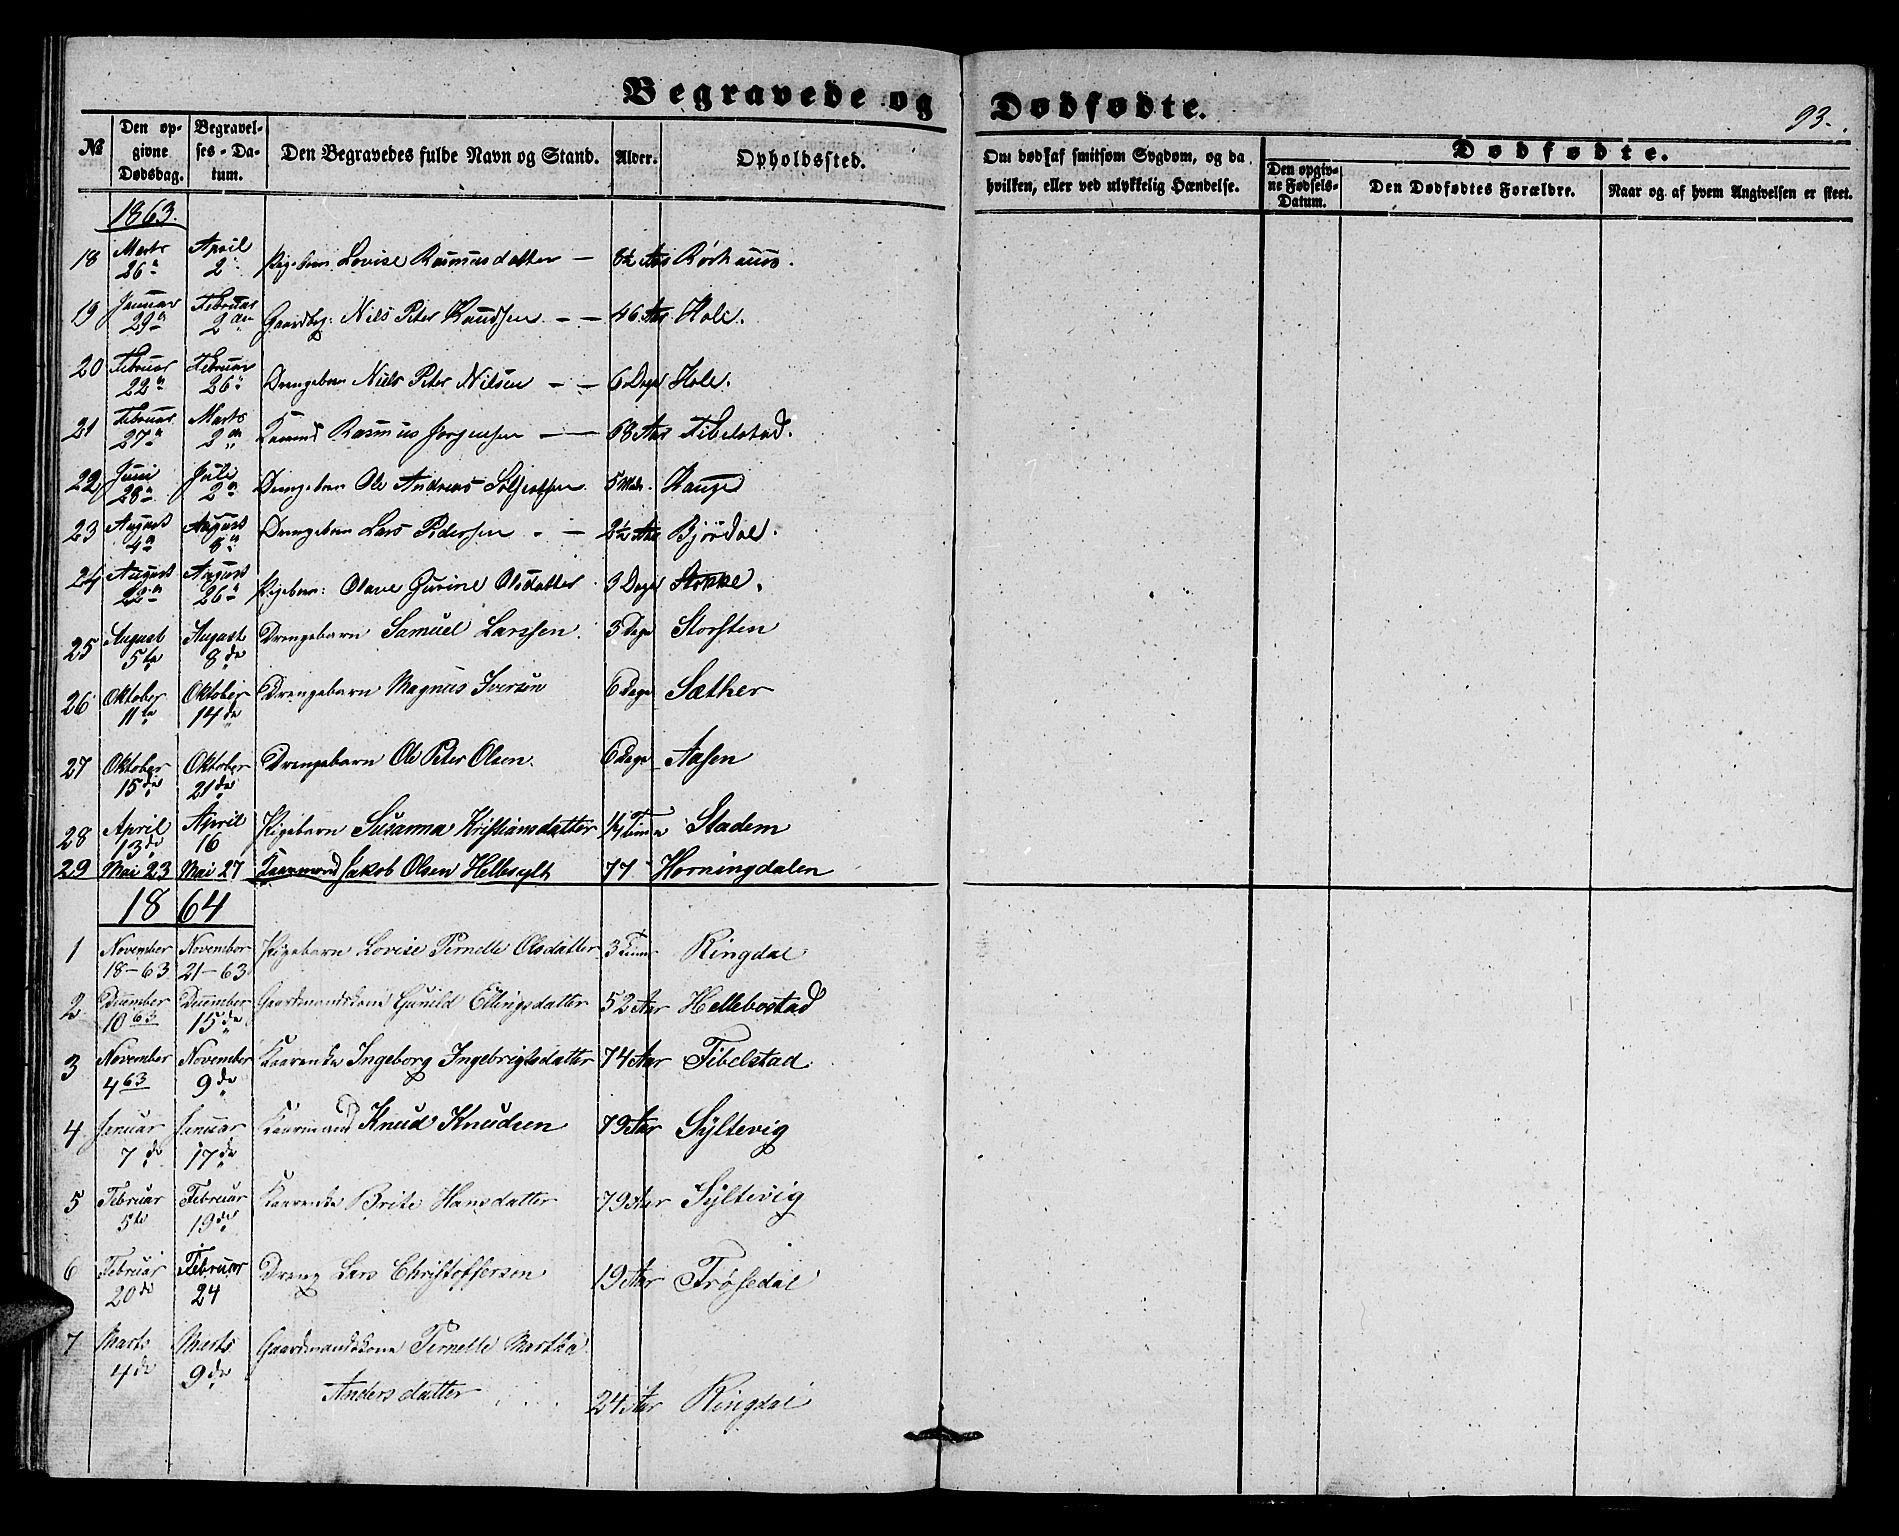 Begravede og Dødfødte.
93.
№
Den opgivne Dødsdag.
Begravelses-Datum.
Den Begravedes fulde Navn og Stand.
Alder.
Opholdssted.
Om død af smitsom Sygdom, og da hvilken, eller ved ulykkelig Hændelse.
Dødfødte.
Den opgivne Fødsels-Datum.
Den Dødfødtes Forældre.
Naar og af hvem Angivelsen er skeet.
1863.
18 Marts 26 April 2 Pigebarn Lovise Rasmusdatter — Aar
19 Januar 29 Februar 2den Gaardbr: Nils Peter Knudsen — — 46 Aar Hole.
20 Februar 22 Februar 26 Drengebarn Niels Peter Nilsen — — 6 Dage Hole.
21 Februar 27 Marts 2den Kaarmd Rasmus Jørgensen — — 68 Aar Fibelstad.
22 Juni 28 Juli 2 Drengebarn Ole Andreas 5 Mdr. Hauge
23 August 4 August 8 Drengebarn Lars Pedersen — 2½ Aar Bjørdal.
24 August 22 August 26 Pigebarn: Olave Gurine Olsdatter 3 Dage Stokke.
25 August 5te August 8de Drengebarn Samuel Larssen. 3 Dage Storsten
26 Oktober 11te Oktober 14de Drengebarn Magnus Iversen 6 Dage Sæther
27 Oktober 15de Oktober 21de Drengebarn Ole Peter Olsen. 6 Dage Aasen
28 April 13de April 16 Pigebarn Susanna Kristiansdatter Stadem
29 Mai 23 Mai 27 Kaarmand Jakob Olsen Hellesylt 77 Horningdalen
1864
1 November 18-63 November 21-63 Pigebarn Lovise Pernelle Olsdatter 3 Timer Ringdal
2 December 10 63 December 15de Gaardmandskone Gunild Ellingsdatter 52 Aar Hellebostad
3 November 4 63 November 9de Kaarenke Ingeborg Ingebrigtsdatter 74 Aar Fibelstad
4 Januar 7de Januar 17de Kaarmand Knud Knudsen 79 Aar Syltevig
5 Februar 5te Februar 19de Kaarenke Brite Hansdatter 79 Aar Syltevig
6 Februar 20de Februar 24 Dreng Lars Christoffersen 19 Aar Frøsedal
7 Marts 4de Marts 9de Gaardmandskone Pernelle Martha
Andersdatter 24 Aar Ringdal